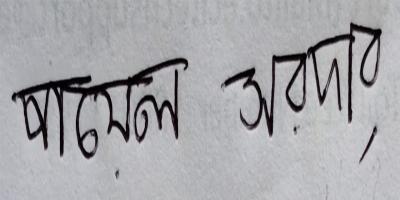 পায়েল সরদার